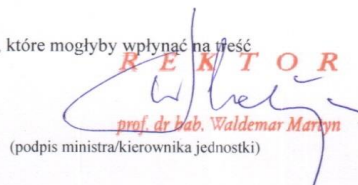 , które mogłyby wpłynąć na treść
R E K T O R
prof. dr hab. Waldemar Martyn
(podpis ministra/kierownika jednostki)